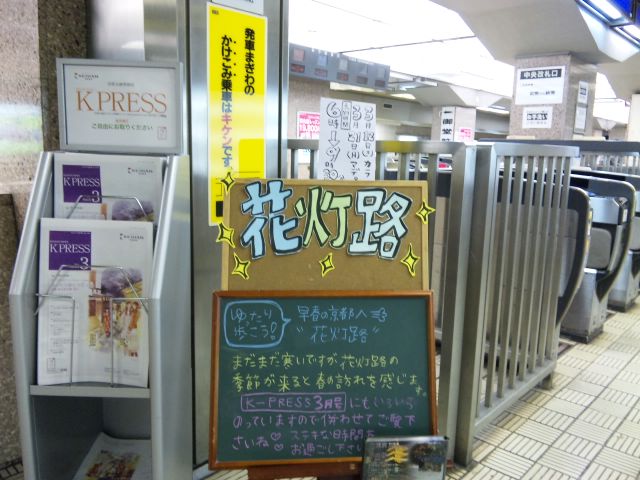 KEIHAN
K PRESS
ご自由にお取りください
K PRESS
3
K PRESS
3
発車まぎわの
かけこみ乗車はキケンです
中央改札口
花灯路
ゆったり
歩こう!
早春の京都へ
"花灯路"
まだまだ寒いですが花灯路の
季節が来ると春の訪れを感じます。
K-PRESS 3月号 にもいろいろ
のっていますので併わせてご覧下
さいね♡ ステキな時間を
お過ごし下さい